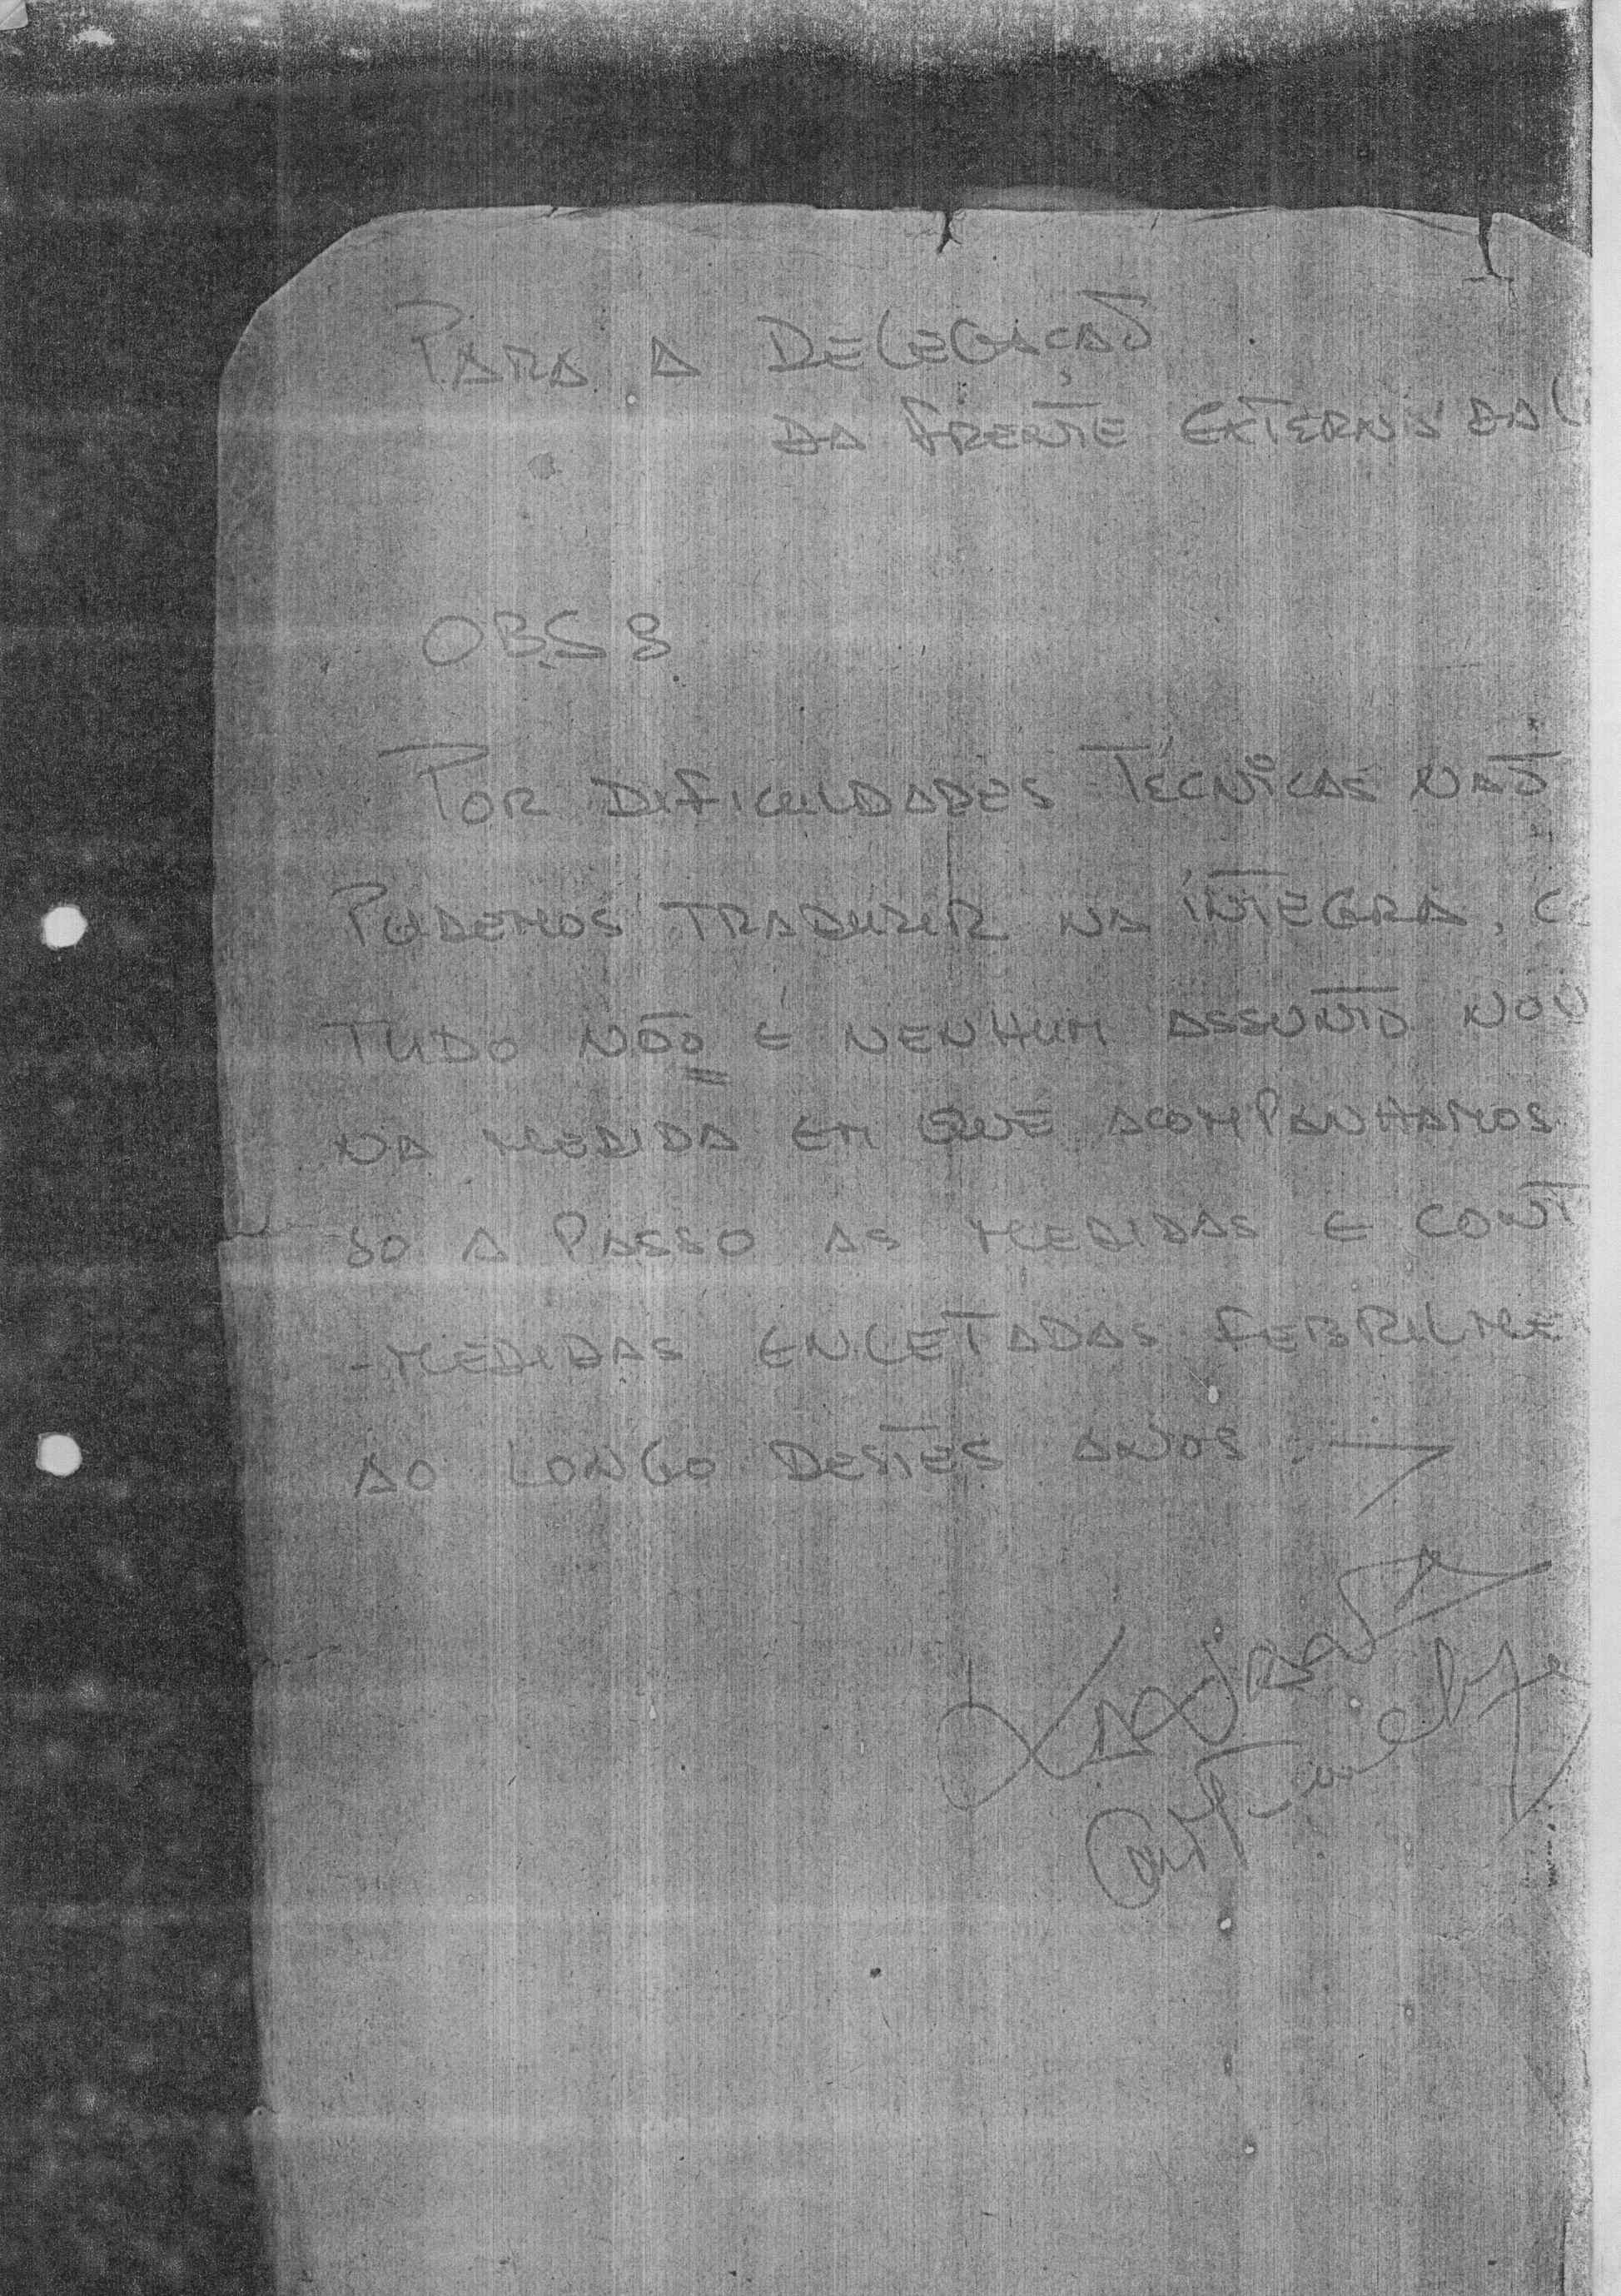 PARA A DELEGAÇÃO
DA FRENTE EXTERNA DA
OBS:
POR DIFICULDADES TÉCNICAS NÃO
PUDEMOS TRADUZIR NA ÍNTEGRA, CO
TUDO NÃO É NENHUM ASSUNTO NOV
NA MEDIDA EM QUE ACOMPANHAMOS
SO A PASSO AS MEDIDAS E CONT
-MEDIDAS ENCETADAS FEBRILME
AO LONGO DESTES ANOS.